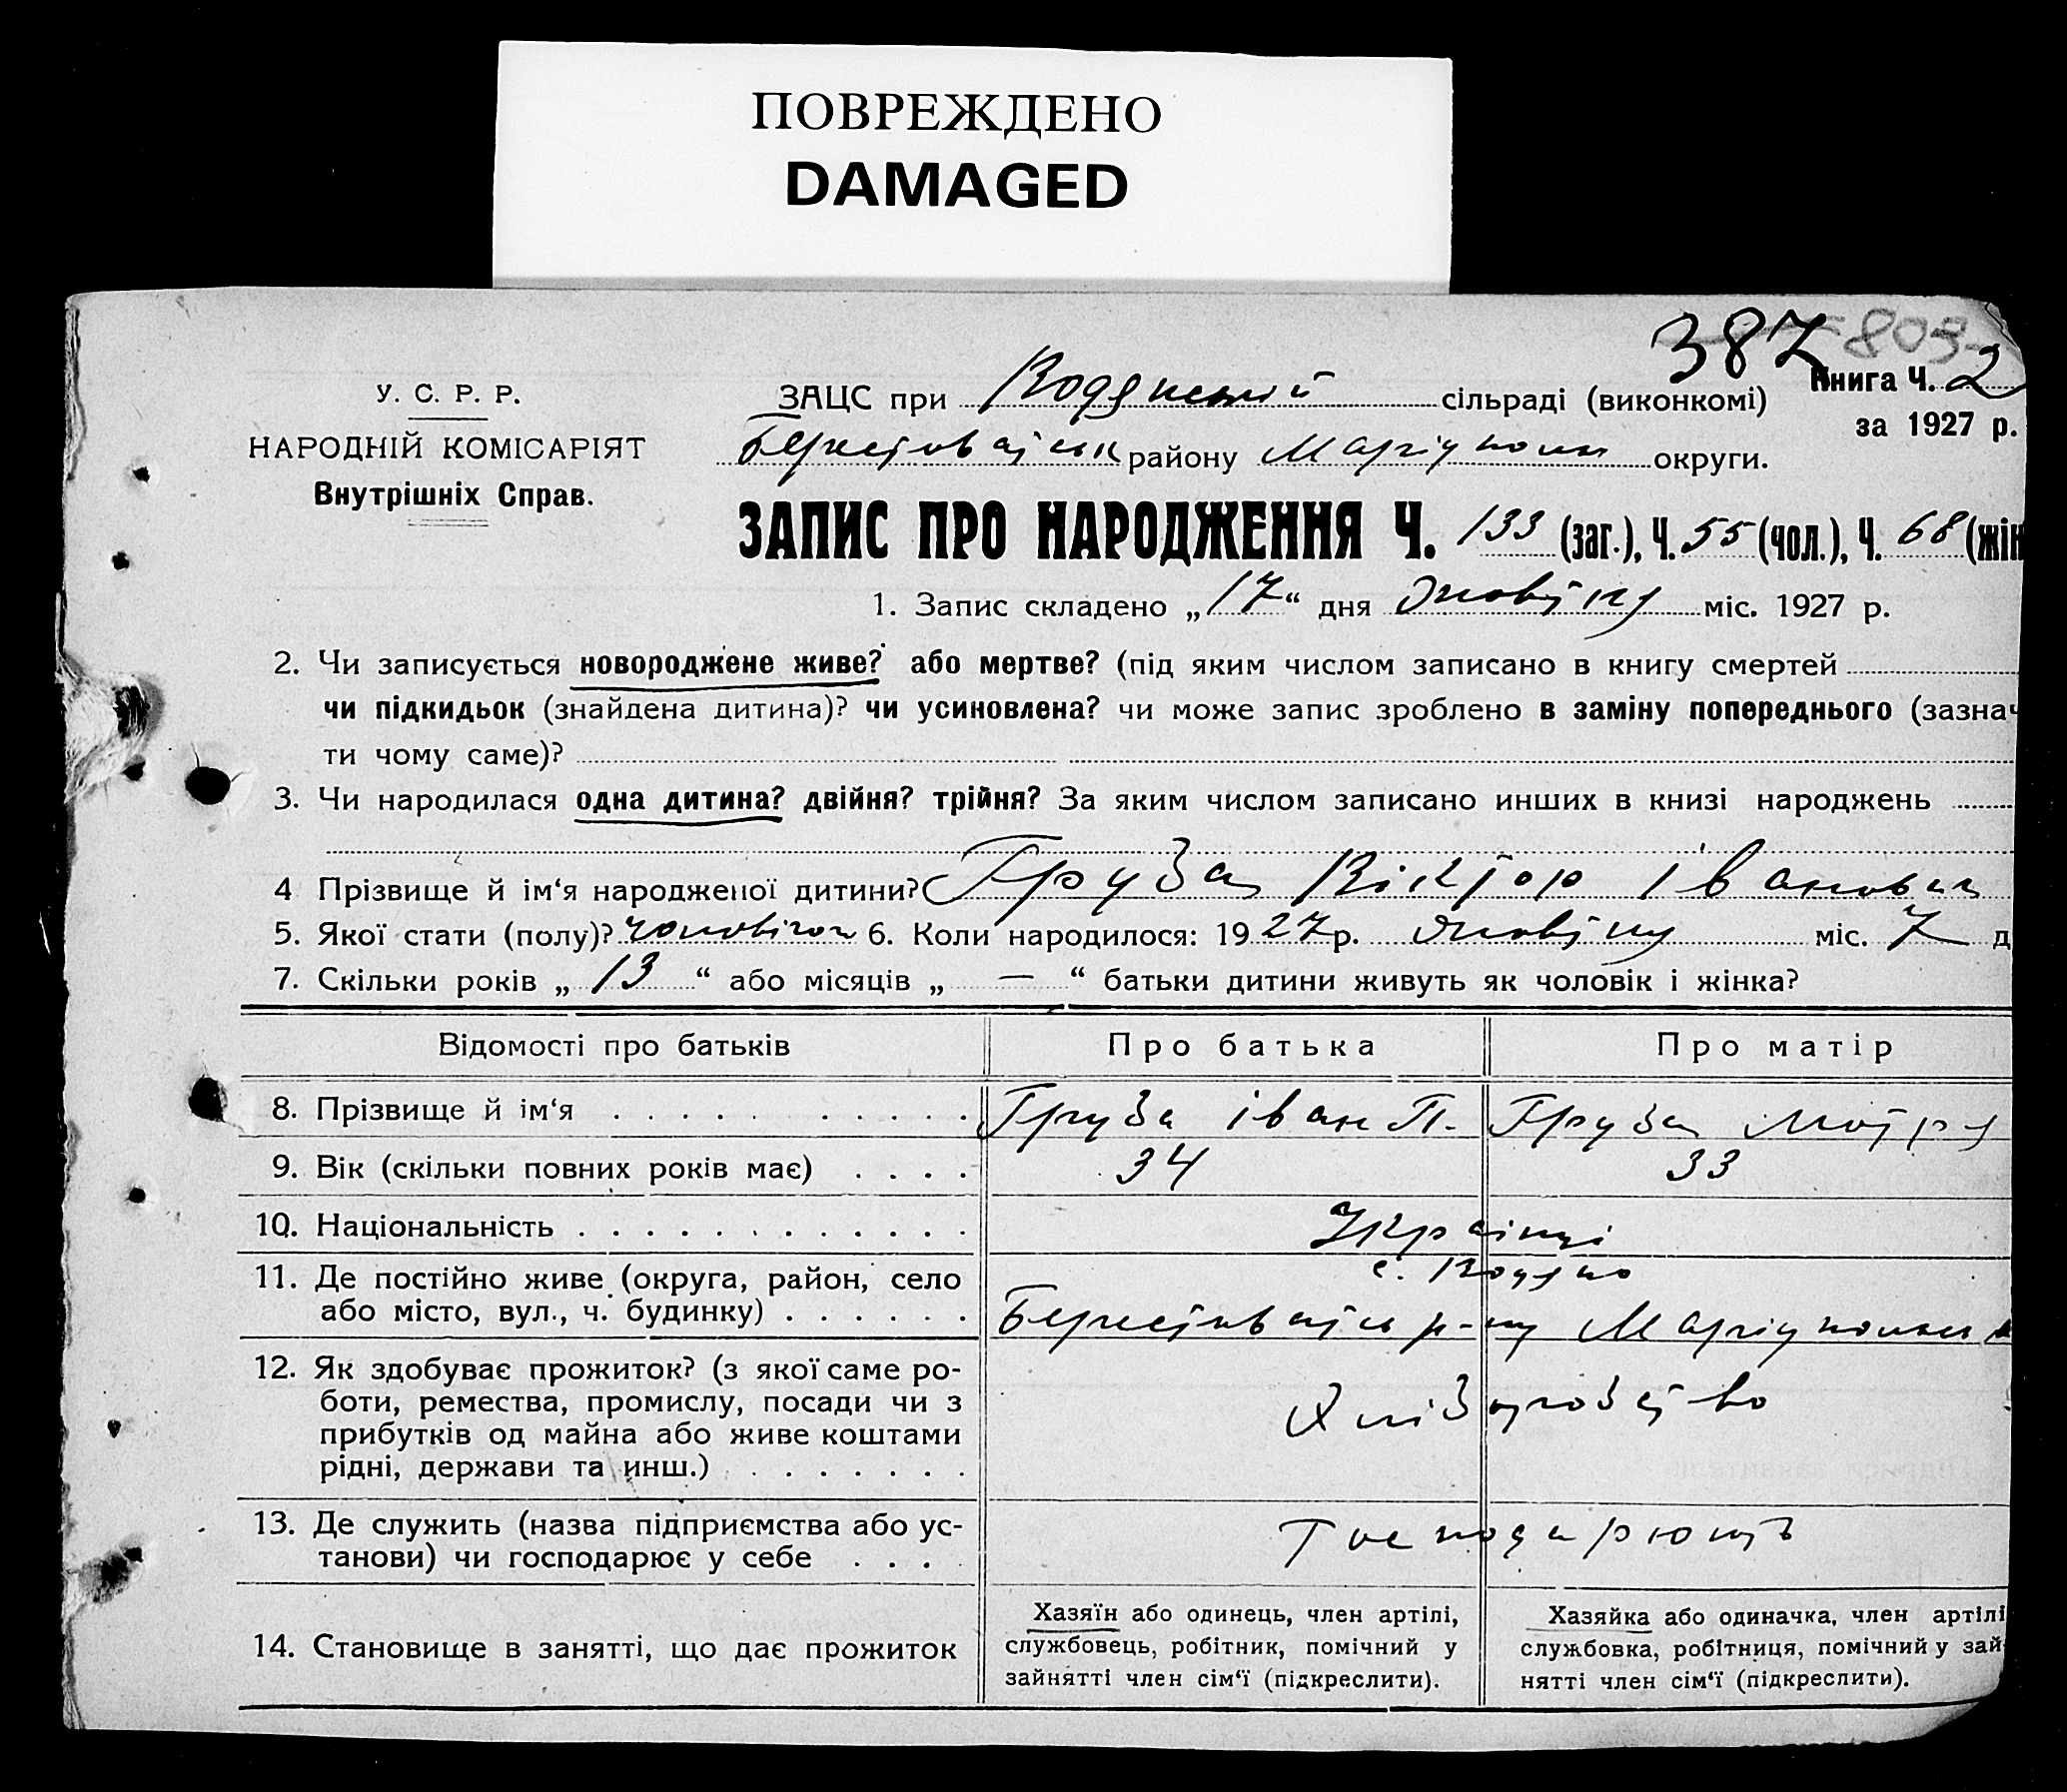 ПОВРЕЖДЕНО
DAMAGED
387 803
Книга Ч. 2
за 1927 р.
У. С. Р. Р.
НАРОДНІЙ КОМІСАРІЯТ
Внутрішніх Справ.
ЗАЦС при Водянській сільраді (виконкомі)
району округи.
ЗАПИС ПРО НАРОДЖЕННЯ Ч. 133 (заг.), Ч. 55 (чол.), Ч. 68 (жін
1. Запис складено „17“ дня Жовтня міс. 1927 р.
2. Чи записується новороджене живе? або мертве? (під яким числом записано в книгу смертей
чи підкидьок (знайдена дитина)? чи усиновлена? чи може запис зроблено в заміну попереднього (зазнач
ти чому саме)?
3. Чи народилася одна дитина? двійня? трійня? За яким числом записано инших в книзі народжень
4 Прізвище й ім‘я народженої дитини? Груза Віктор Іванович
5. Якої стати (полу)? 6. Коли народилося: 1927 р. Жовтня міс. 7 д
7. Скільки років „13“ або місяців „—“ батьки дитини живуть як чоловік і жінка?
Відомості про батьків Про батька Про матір
8. Прізвище й ім‘я Груза Іван П. Груза Мотря
9. Вік (скільки повних років має) 34 33
10. Національність Українці
11. Де постійно живе (округа, район, село
або місто, вул., ч. будинку)
с. Водяно
р-ну
12. Як здобуває прожиток? (з якої саме ро-
боти, ремества, промислу, посади чи з
прибутків од майна або живе коштами
рідні, держави та инш.)
Хліборобство
13. Де служить (назва підприємства або ус-
танови) чи господарює у себе
Господарюють
14. Становище в занятті, що дає прожиток
Хазяїн або одинець, член артілі,
службовець, робітник, помічний у
зайнятті член сім‘ї (підкреслити).
Хазяйка або одиначка, член артілі
службовка, робітниця, помічний у зай-
нятті член сім‘ї (підкреслити).